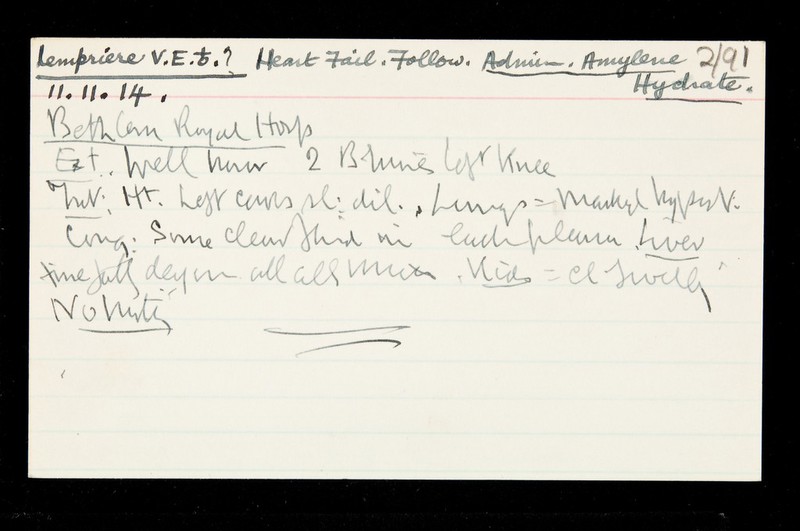 Lempriere V.E.t.? Heart Fail. Follow. Admin. Amylene 2/91
Hydrate.
11.11.14.
Bethlem Royal Hosp
Ext. Well nour 2 Bruises left Knee
Int: Ht. Left cavs sl: dil., Lungs = Marked hypost.
Cong: Some clear fluid in each pleura. Liver
fatty degen all. Kids = cl Swell
No